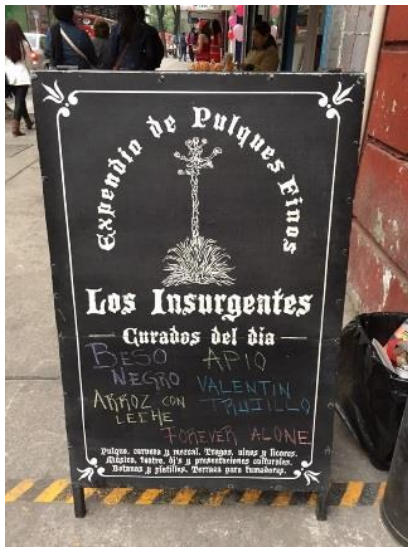 Expendio de Pulques Finos
Los Insurgentes
Curados del día
BESO NEGRO
APIO
ARROZ CON LECHE
VALENTIN TRUJILLO
FOREVER ALONE
Pulque, cerveza y mezcal. Tragos, vinos y licores.
Música, teatro, dj's y presentaciones culturales.
Botanas y platillos. Terraza para fumadores.